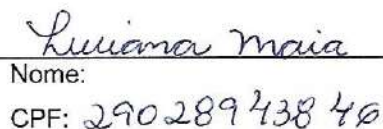 Luciana Maia
Nome:
CPF: 290289438 46